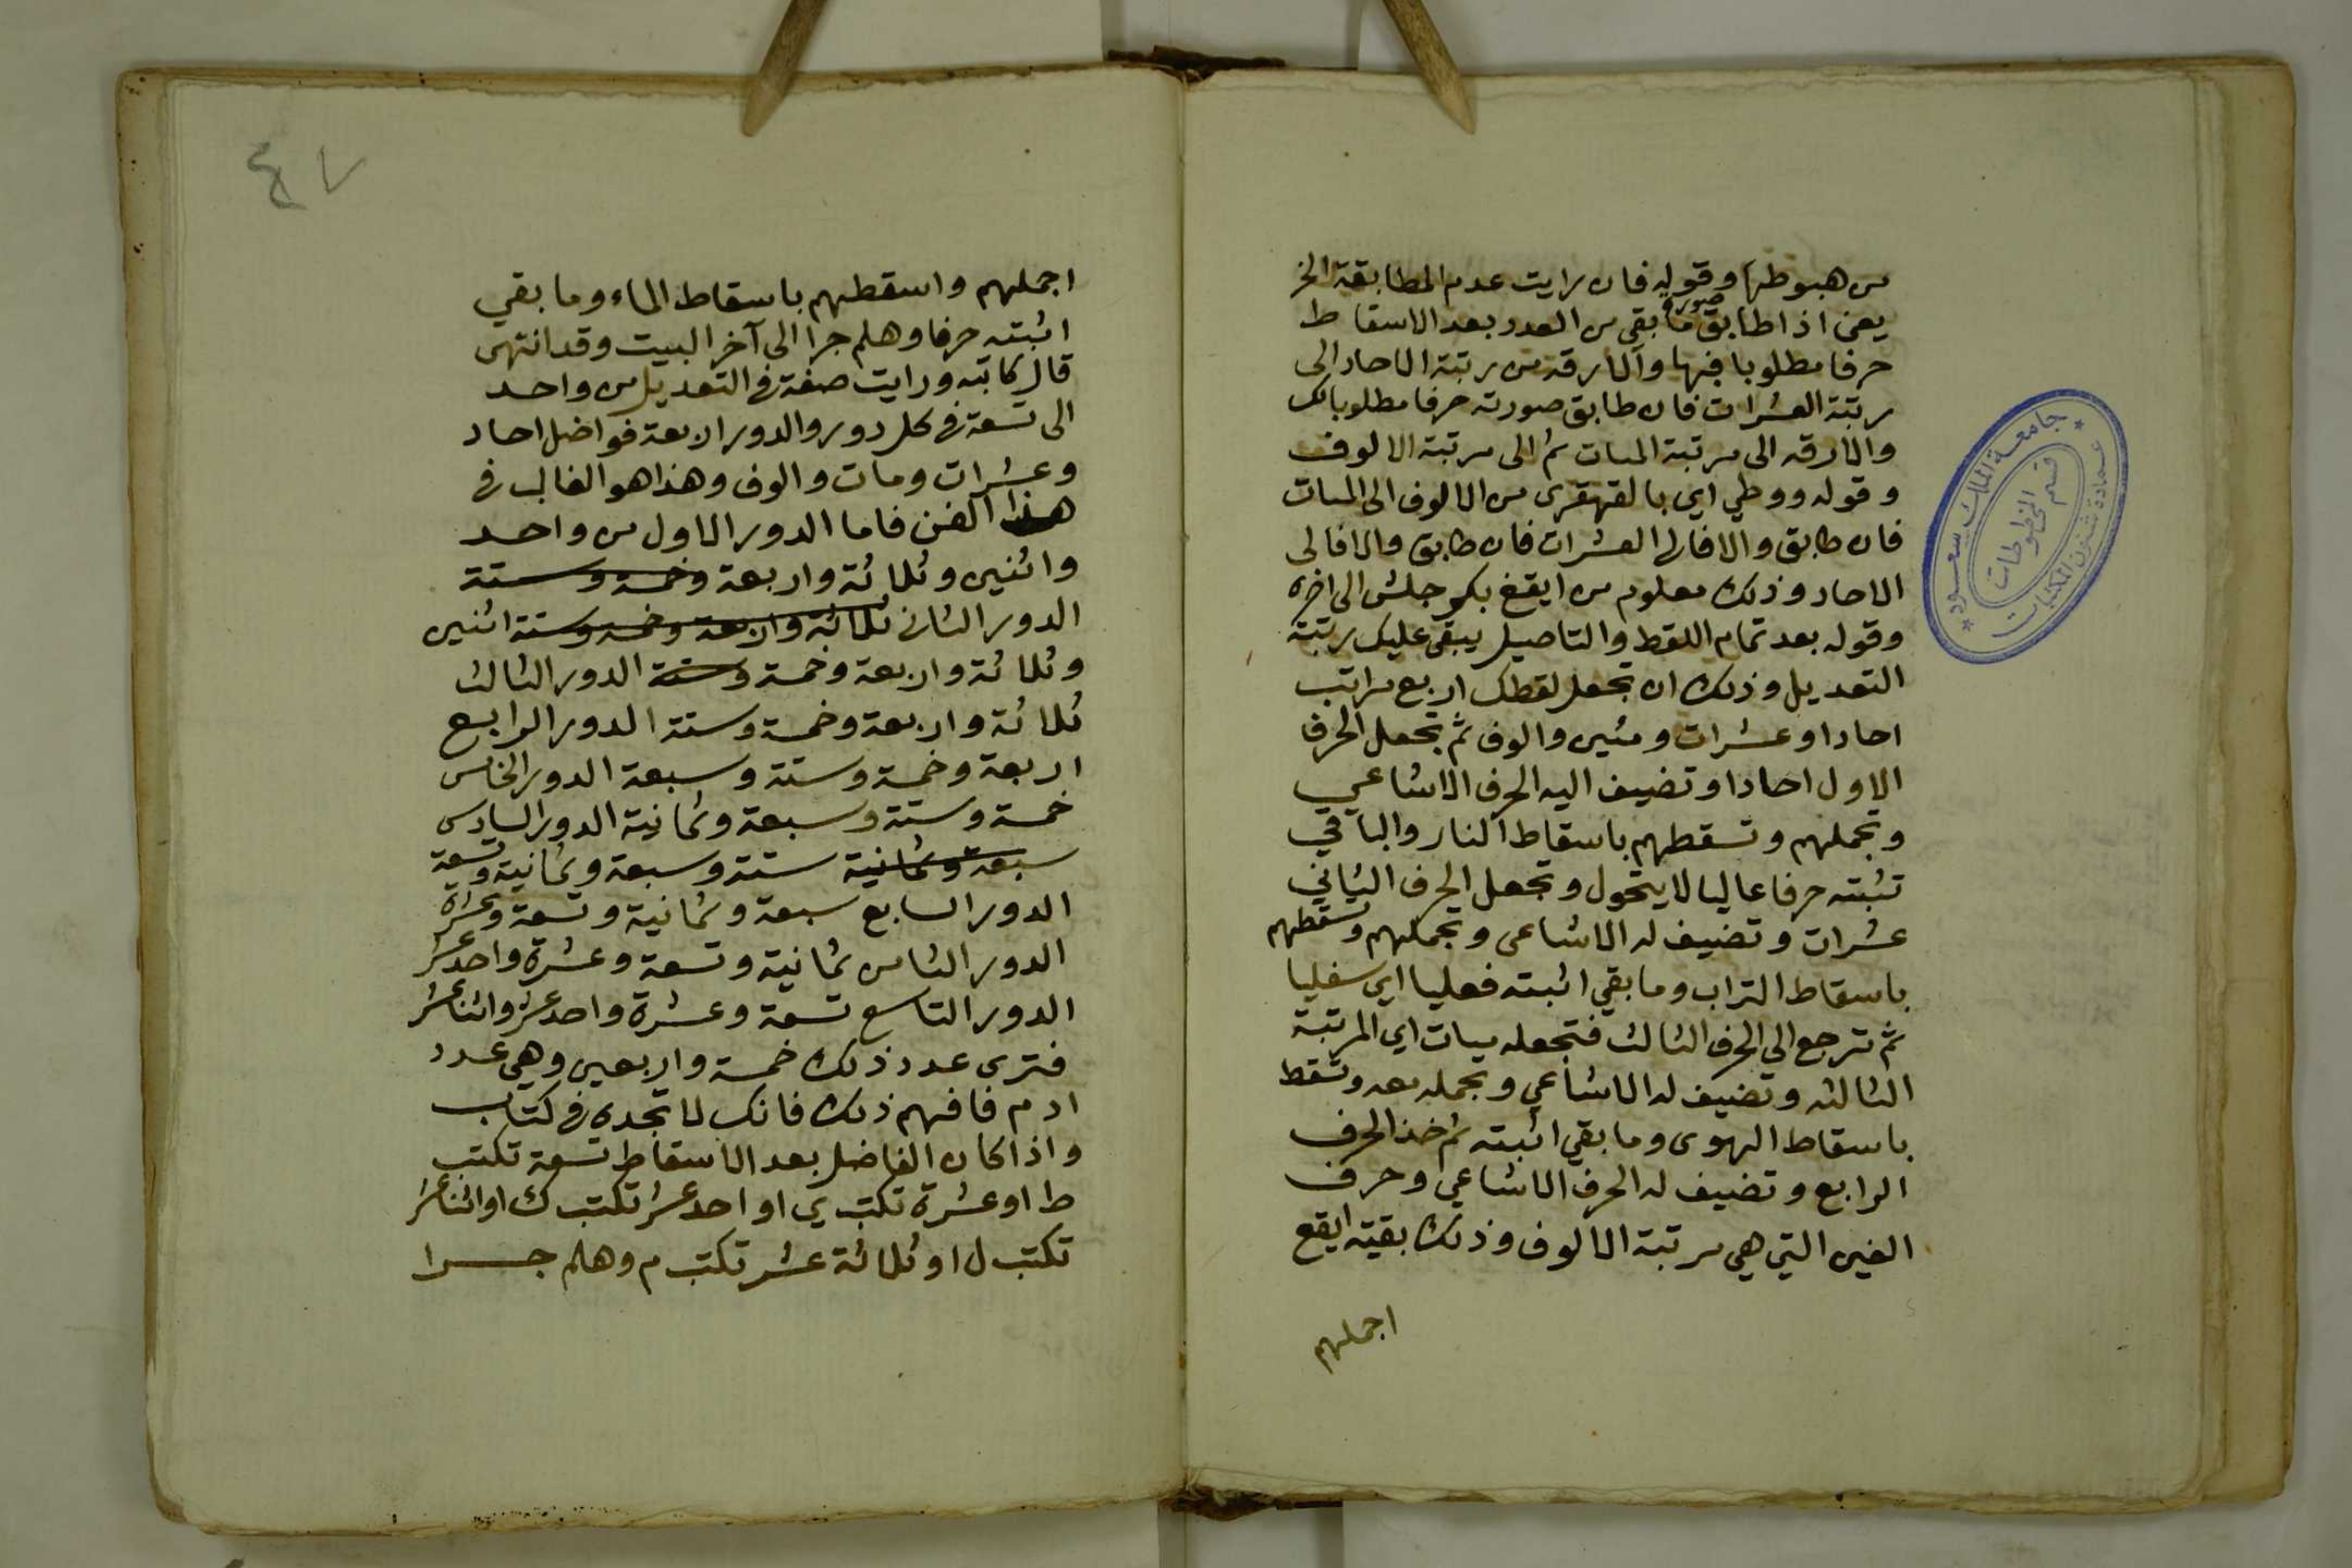 من هبوطها وقوله فان رايت عدم المطابقة الخ
يعني اذا طابق صورة ما بقي من العدد بعد الاسقاط
حرفا مطلوبا فبها والا رقه من رتبة الاحاد الى
رتبة العشرات فان طابق صورته حرفا مطلوبا لك
والا رقه الى مرتبة المئات ثم الى مرتبة الالوف
وقوله ووطي اي بالقهقرى من الالوف الى المئات
فان طابق والا فالى العشرات فان طابق والا فالى
الاحاد وذلك معلوم من ايقغ بكر جلش الى اخره
وقوله بعد تمام اللقط والتاصيل يبقى عليك رتبة
التعديل وذلك ان تجعل لقطك اربع مراتب
احادا وعشرات ومئين والوف ثم تجعل الحرف
الاول احادا وتضيف اليه الحرف الاشاعي
وتجملهم وتسقطهم باسقاط النار والباقي
تثبته حرفا عاليا لا يتحول وتجعل الحرف الثاني
عشرات وتضيف له الاشاعي وتجملهم وتسقطهم
باسقاط التراب وما بقي اثبته فعليا اي سفليا
ثم ترجع الى الحرف الثالث فتجعله ميات اي المرتبة
الثالثه وتضيف له الاشاعي وتجمله معه وتسقط
باسقاط الهوى وما بقي اثبته ثم خذ الحرف
الرابع وتضيف له الحرف الاشاعي وحرف
الغين التي هي مرتبة الالوف وذلك بقية ايقغ
اجملهم
جامعة الملك سعود
عمادة شئون المكتبات
قسم المخطوطات
٤٧
اجملهم واسقطهم باسقاط الماء وما بقي
اثبته حرفا وهلم جرا الى آخر البيت وقد انتهى
قال كاتبه ورايت صفة في التعديل من واحد
الى تسعة في كل دور والدور اربعة فواضل احاد
وعشرات ومات والوف وهذا هو الغالب في
هذا الفن فاما الدور الاول من واحد
واثنين وثلاثة واربعة وخمسة وستة
الدور الثاني ثلاثة واربعة وخمسة وستة اثنين
وثلاثة واربعة وخمسة وستة الدور الثالث
ثلاثة واربعة وخمسة وستة الدور الرابع
اربعة وخمسة وستة وسبعة الدور الخامس
خمسة وستة وسبعة وثمانية الدور السادس
سبعة وثمانية ستة وسبعة وثمانية وتسعة
الدور السابع سبعة وثمانية وتسعة وعشرة
الدور الثامن ثمانية وتسعة وعشرة واحد عشر
الدور التاسع تسعة وعشرة واحد عشر واثنا عشر
فترى عدد ذلك خمسة واربعين وهي عدد
ادم فافهم ذلك فانك لا تجده في كتاب
واذا كان الفاضل بعد الاسقاط تسعة تكتب
ط او عشرة تكتب ي او احد عشر تكتب ك او اثنا عشر
تكتب ل او ثلاثة عشر تكتب م وهلم جرا